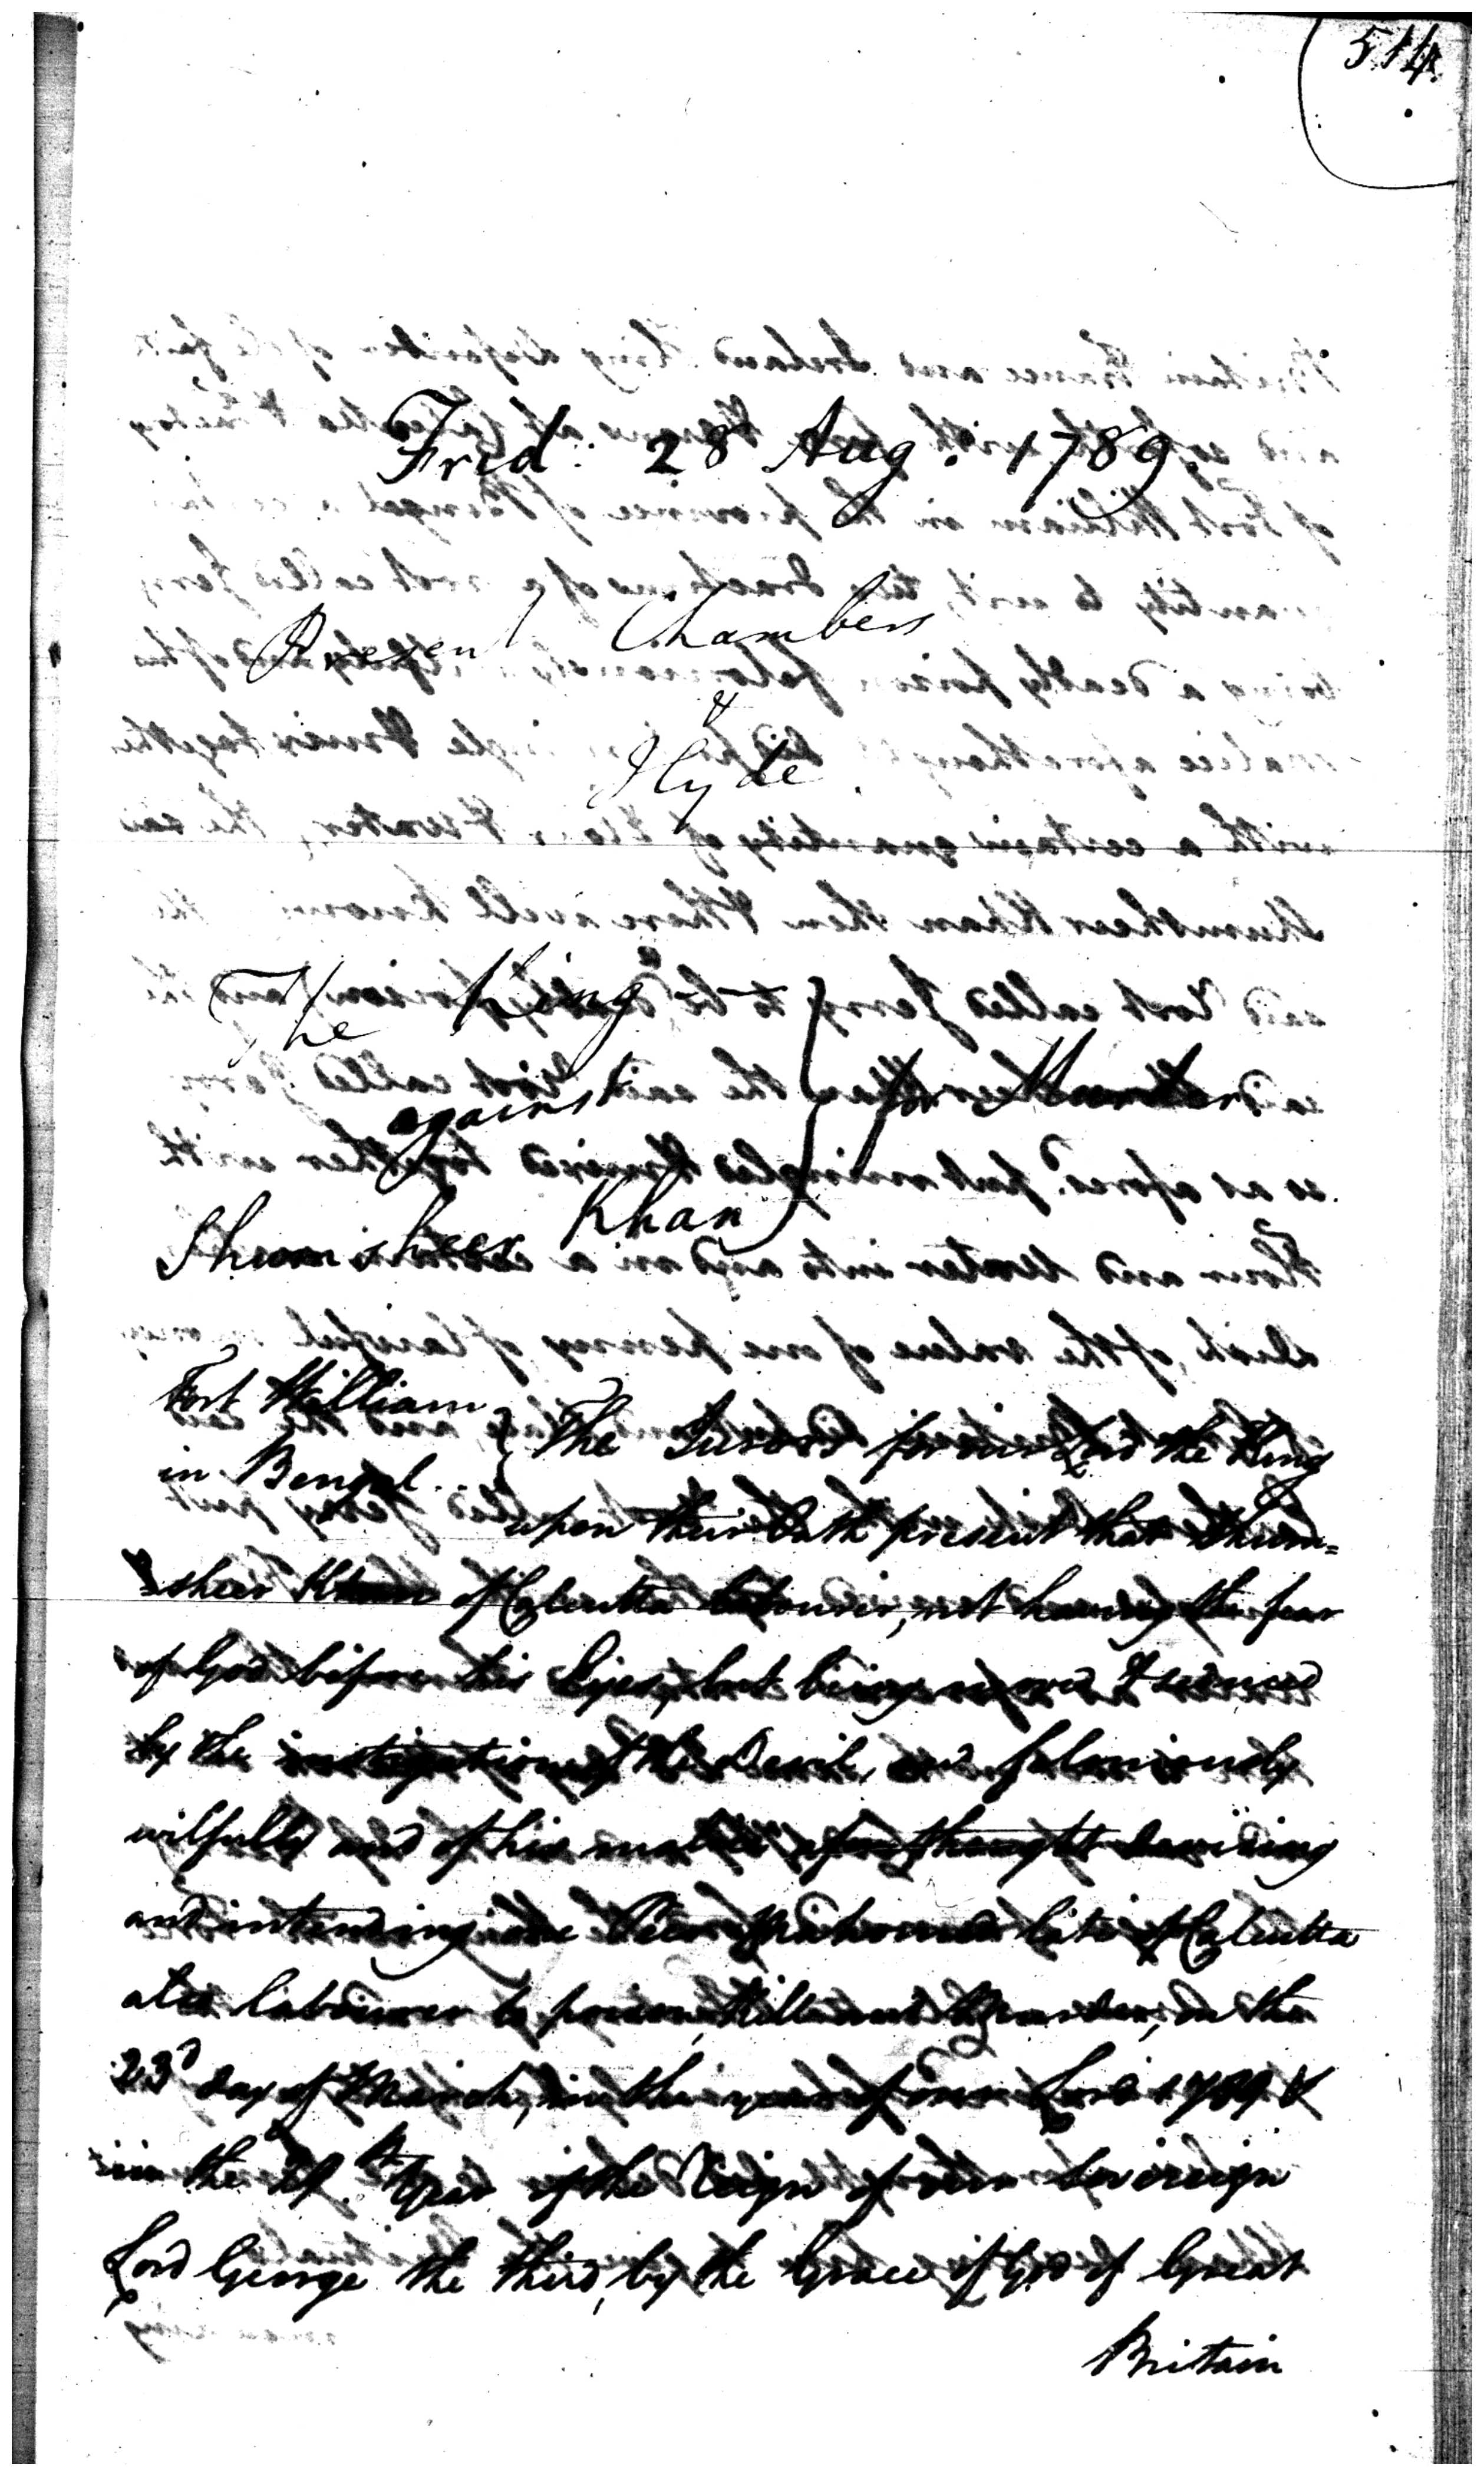 514.
Frid. 28 Aug. 1789.
Present Chambers
&
Hyde.
The King
against } for Murder
Shumsheer Khan
Fort William
in Bengal. } The Jurors for our Lord the King
upon their Oath present that Shum=
=sheer Khan of Calcutta labourer, not having the fear
of God before his Eyes, but being moved & seduced
by the instigation of the Devil, and feloniously
wilfully and of his malice aforethought devising
and intending one Peer Mahomed late of Calcutta
also labourer to poison, kill and Murder, on the
23d day of March, in the year of our Lord 1789 &
in the 29th Year of the Reign of our Sovereign
Lord George the third, by the Grace of God of Great
Britain